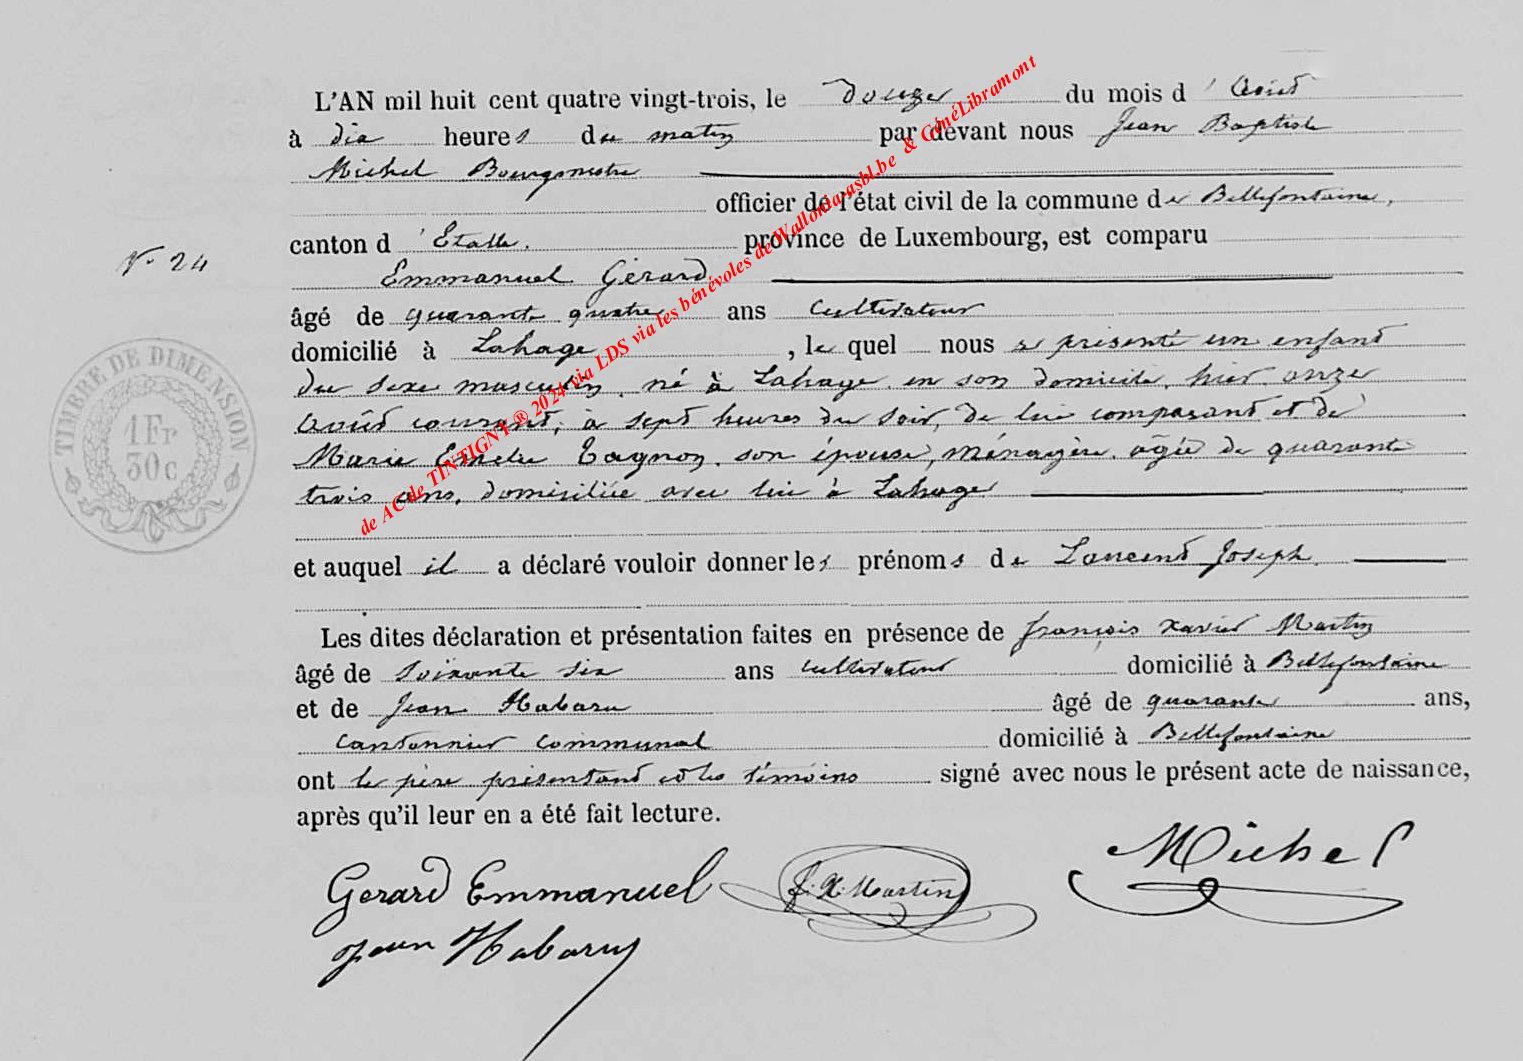 L'AN mil huit cent quatre vingt-trois, le douze du mois d'Août
à dix heures du matin par devant nous Jean Baptiste
Michel Bourgmestre
officier de l'état civil de la commune de Bellefontaine,
canton d'Etalle. province de Luxembourg, est comparu
N° 24
Emmanuel Gérard
âgé de quarante quatre ans cultivateur
domicilié à Lahage, lequel nous a présenté un enfant
du sexe masculin, né à Lahage en son domicile, hier onze
Août courant, à sept heures du soir, de lui comparant et de
Marie Tagnon, son épouse, ménagère, agée de quarante
trois ans, domiciliée avec lui à Lahage
TIMBRE DE DIMENSION
1 Fr
30 c
et auquel il a déclaré vouloir donner les prénoms de Joseph.
Les dites déclaration et présentation faites en présence de françois xavier Martin
âgé de soixante six ans cultivateur domicilié à Bellefontaine
et de Jean Habaru âgé de quarante ans,
cantonnier communal domicilié à Bellefontaine
ont le père présentant et les témoins signé avec nous le présent acte de naissance,
après qu'il leur en a été fait lecture.
Gerard Emmanuel f. X. Martin Michel
jean Habaru
de AC de TINTIGNY ® 2024 via LDS via les bénévoles de Walloniaasbl.be & GénéLibramont